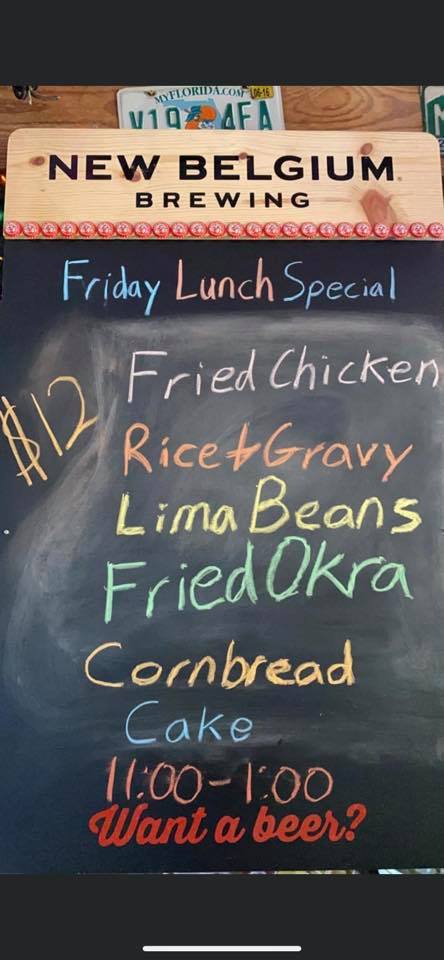 MYFLORIDA.COM 06-16
V19 4EA
NEW BELGIUM
BREWING
Friday Lunch Special
$12
Fried Chicken
Rice + Gravy
Lima Beans
Fried Okra
Cornbread
Cake
11:00-1:00
Want a beer?